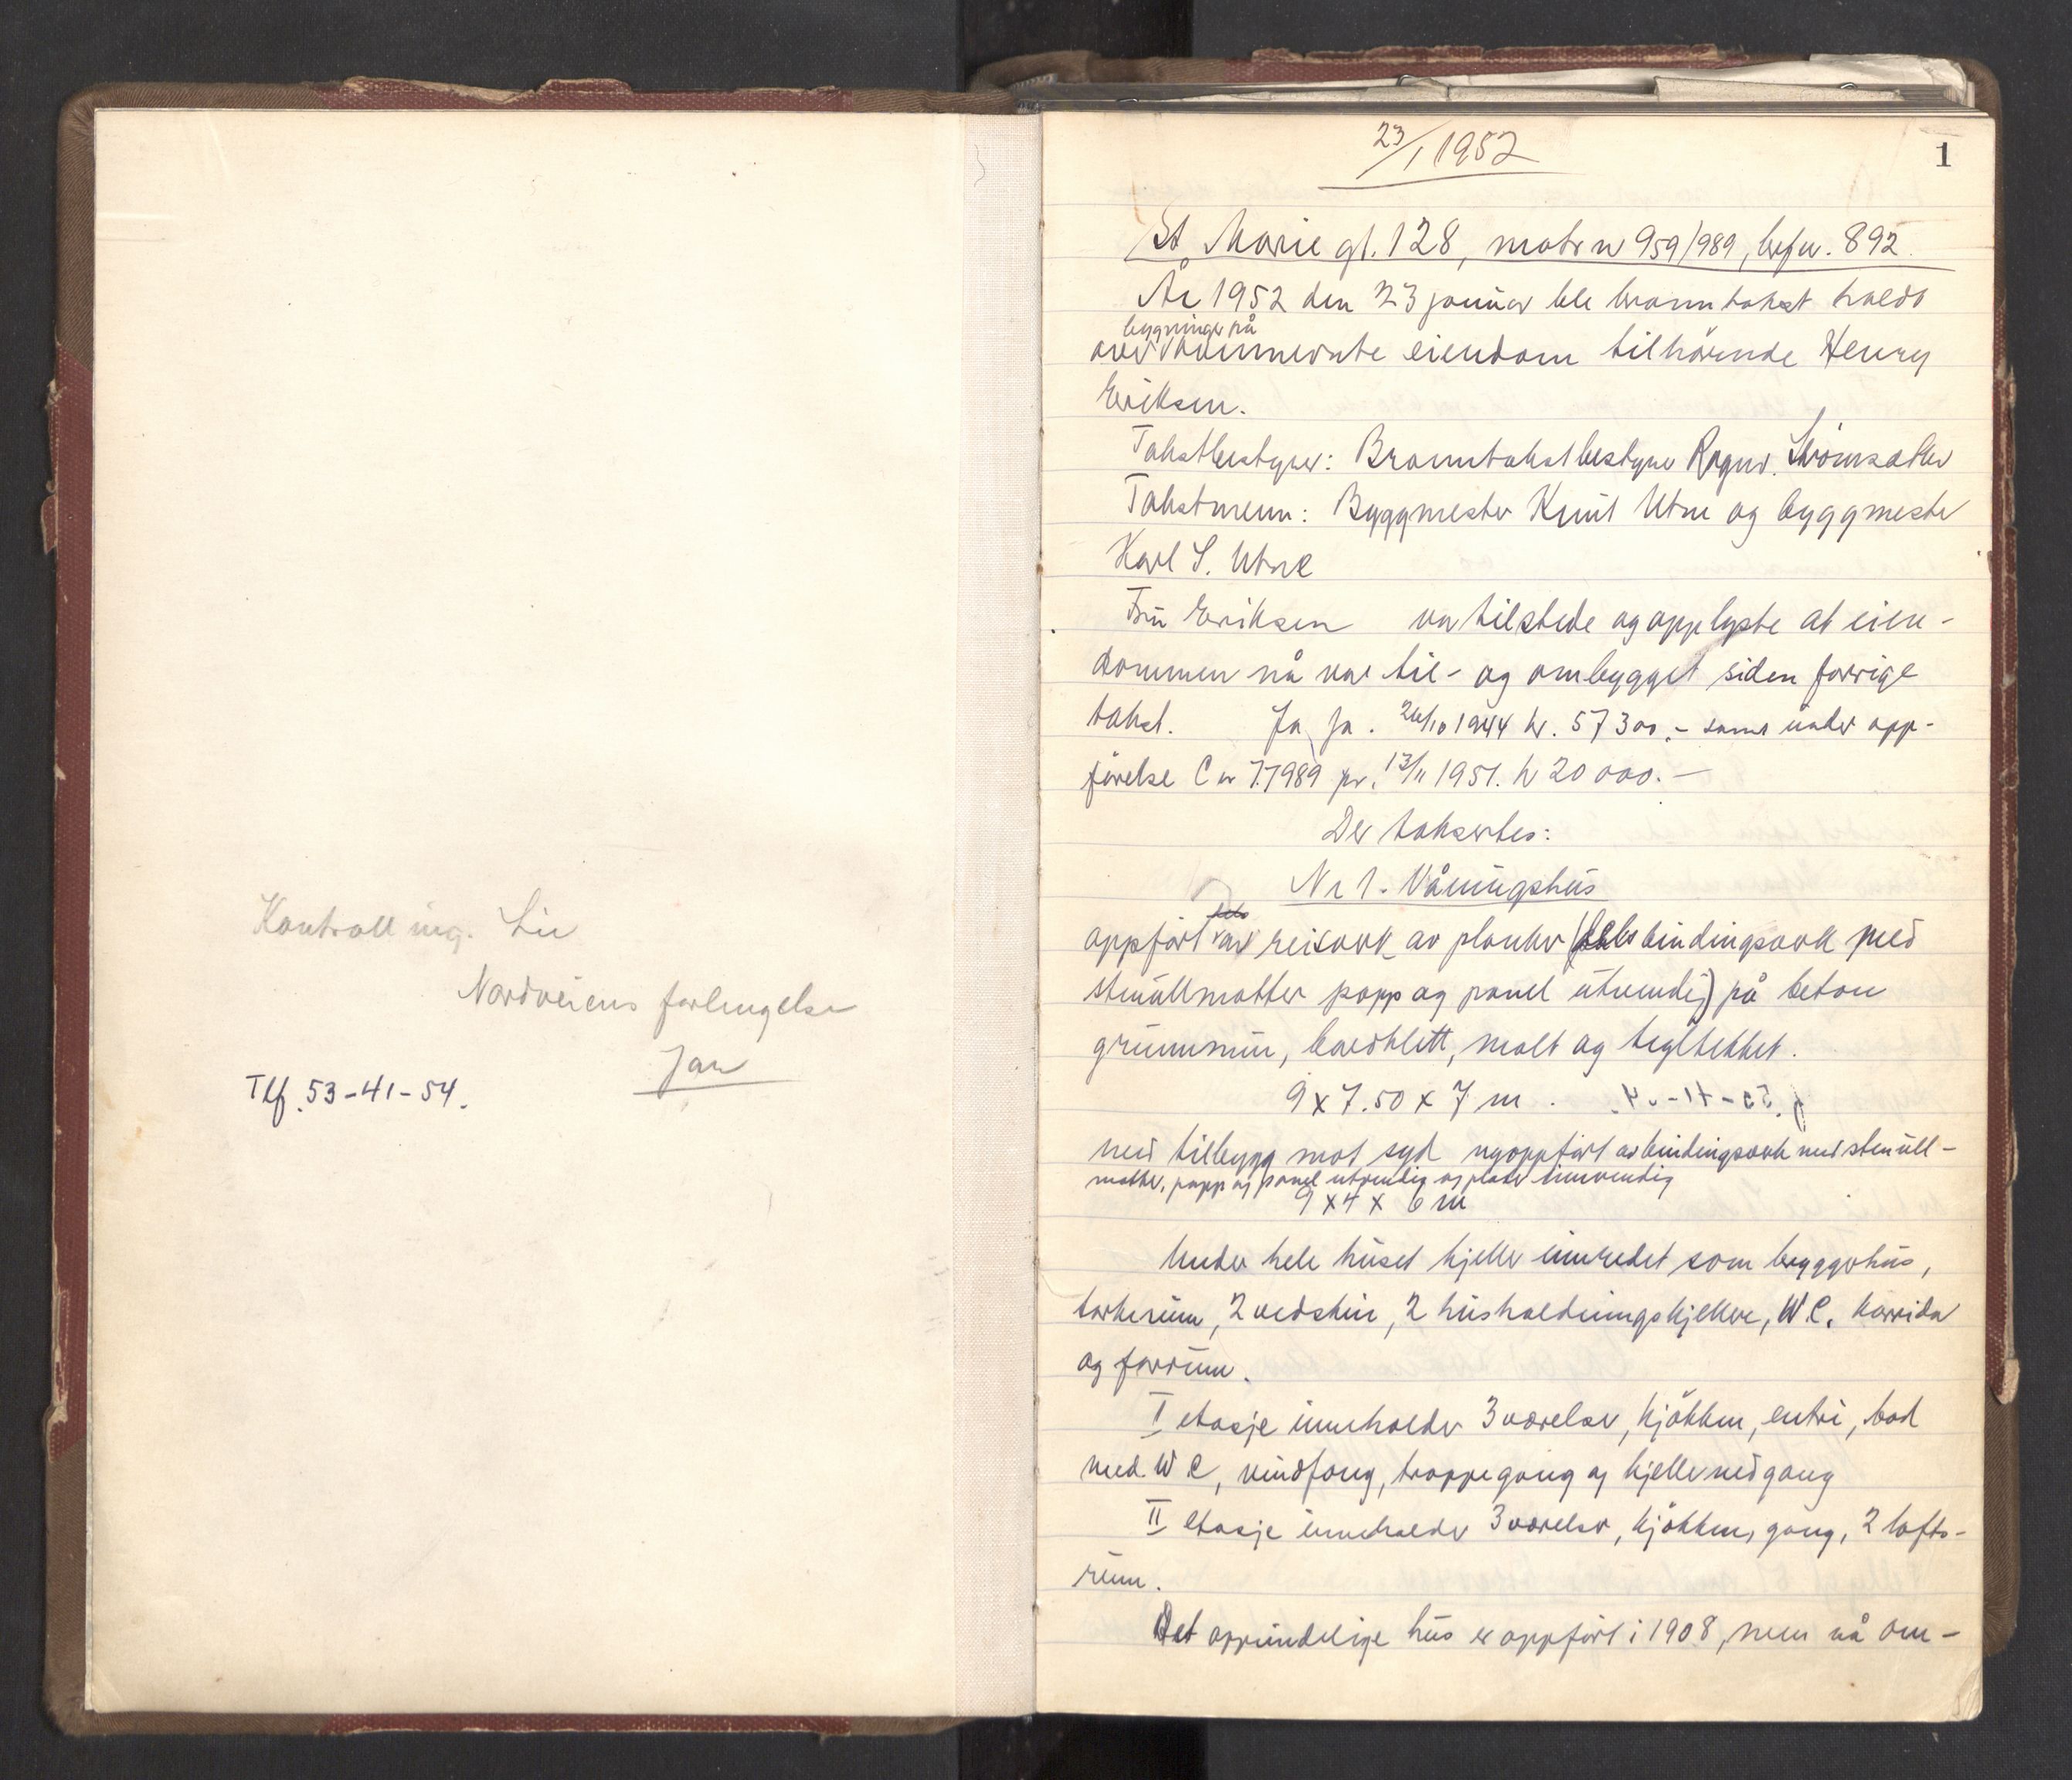 Kontrolling. Lie
Nordveiens forlengelse
Jar
Tlf. 53-41-54.
23/1 1952
1
St. Marie gt. 128, matr nr 959/989, brfnr. 892.
År 1952 den 23 januar ble branntakst holdt
over bygninger på ovennevnte eiendom tilhörende Henry
Eriksen.
Takstbestyrer: Branntakstbestyrer Ragnv. Strömsæther
Takstmenn: Byggmester Knut Utne og byggmester
Karl S. Utne
Fru Eriksen var tilstede og opplyste at eien-
dommen nå var til- og ombygget siden forrige
takst. Ja, ja. 26/10 1944 kr. 57300.- samt under opp-
förelse C nr 7.7989 pr. 13/11 1951. kr 20000.-
Der taksertes:
Nr 1. Våningshus
oppfört av reisverk av planker (dels bindingsverk med
stenullmatter papp og panel utvendig) på beton
grunnmur, bordklett, malt og tegltekket.
9 x 7.50 x 7 m.
med tilbygg mot syd nyoppfört av bindingsverk med stenull-
matter, papp og panel utvendig og plater innvendig
9 x 4 x 6 m
Under hele huset kjeller innredet som bryggerhus,
törkerum, 2 vedskur, 2 husholdningskjellere, W.C. korridor
og forrum.
I etasje inneholder 3 værelser, kjökken, entri, bad
med W C, vindfang, trappegang og kjellernedgang
II etasje inneholder 3 værelser, kjökken, gang, 2 lofts-
rum.
Det opprindelige hus er oppfört i 1908, men nå om-